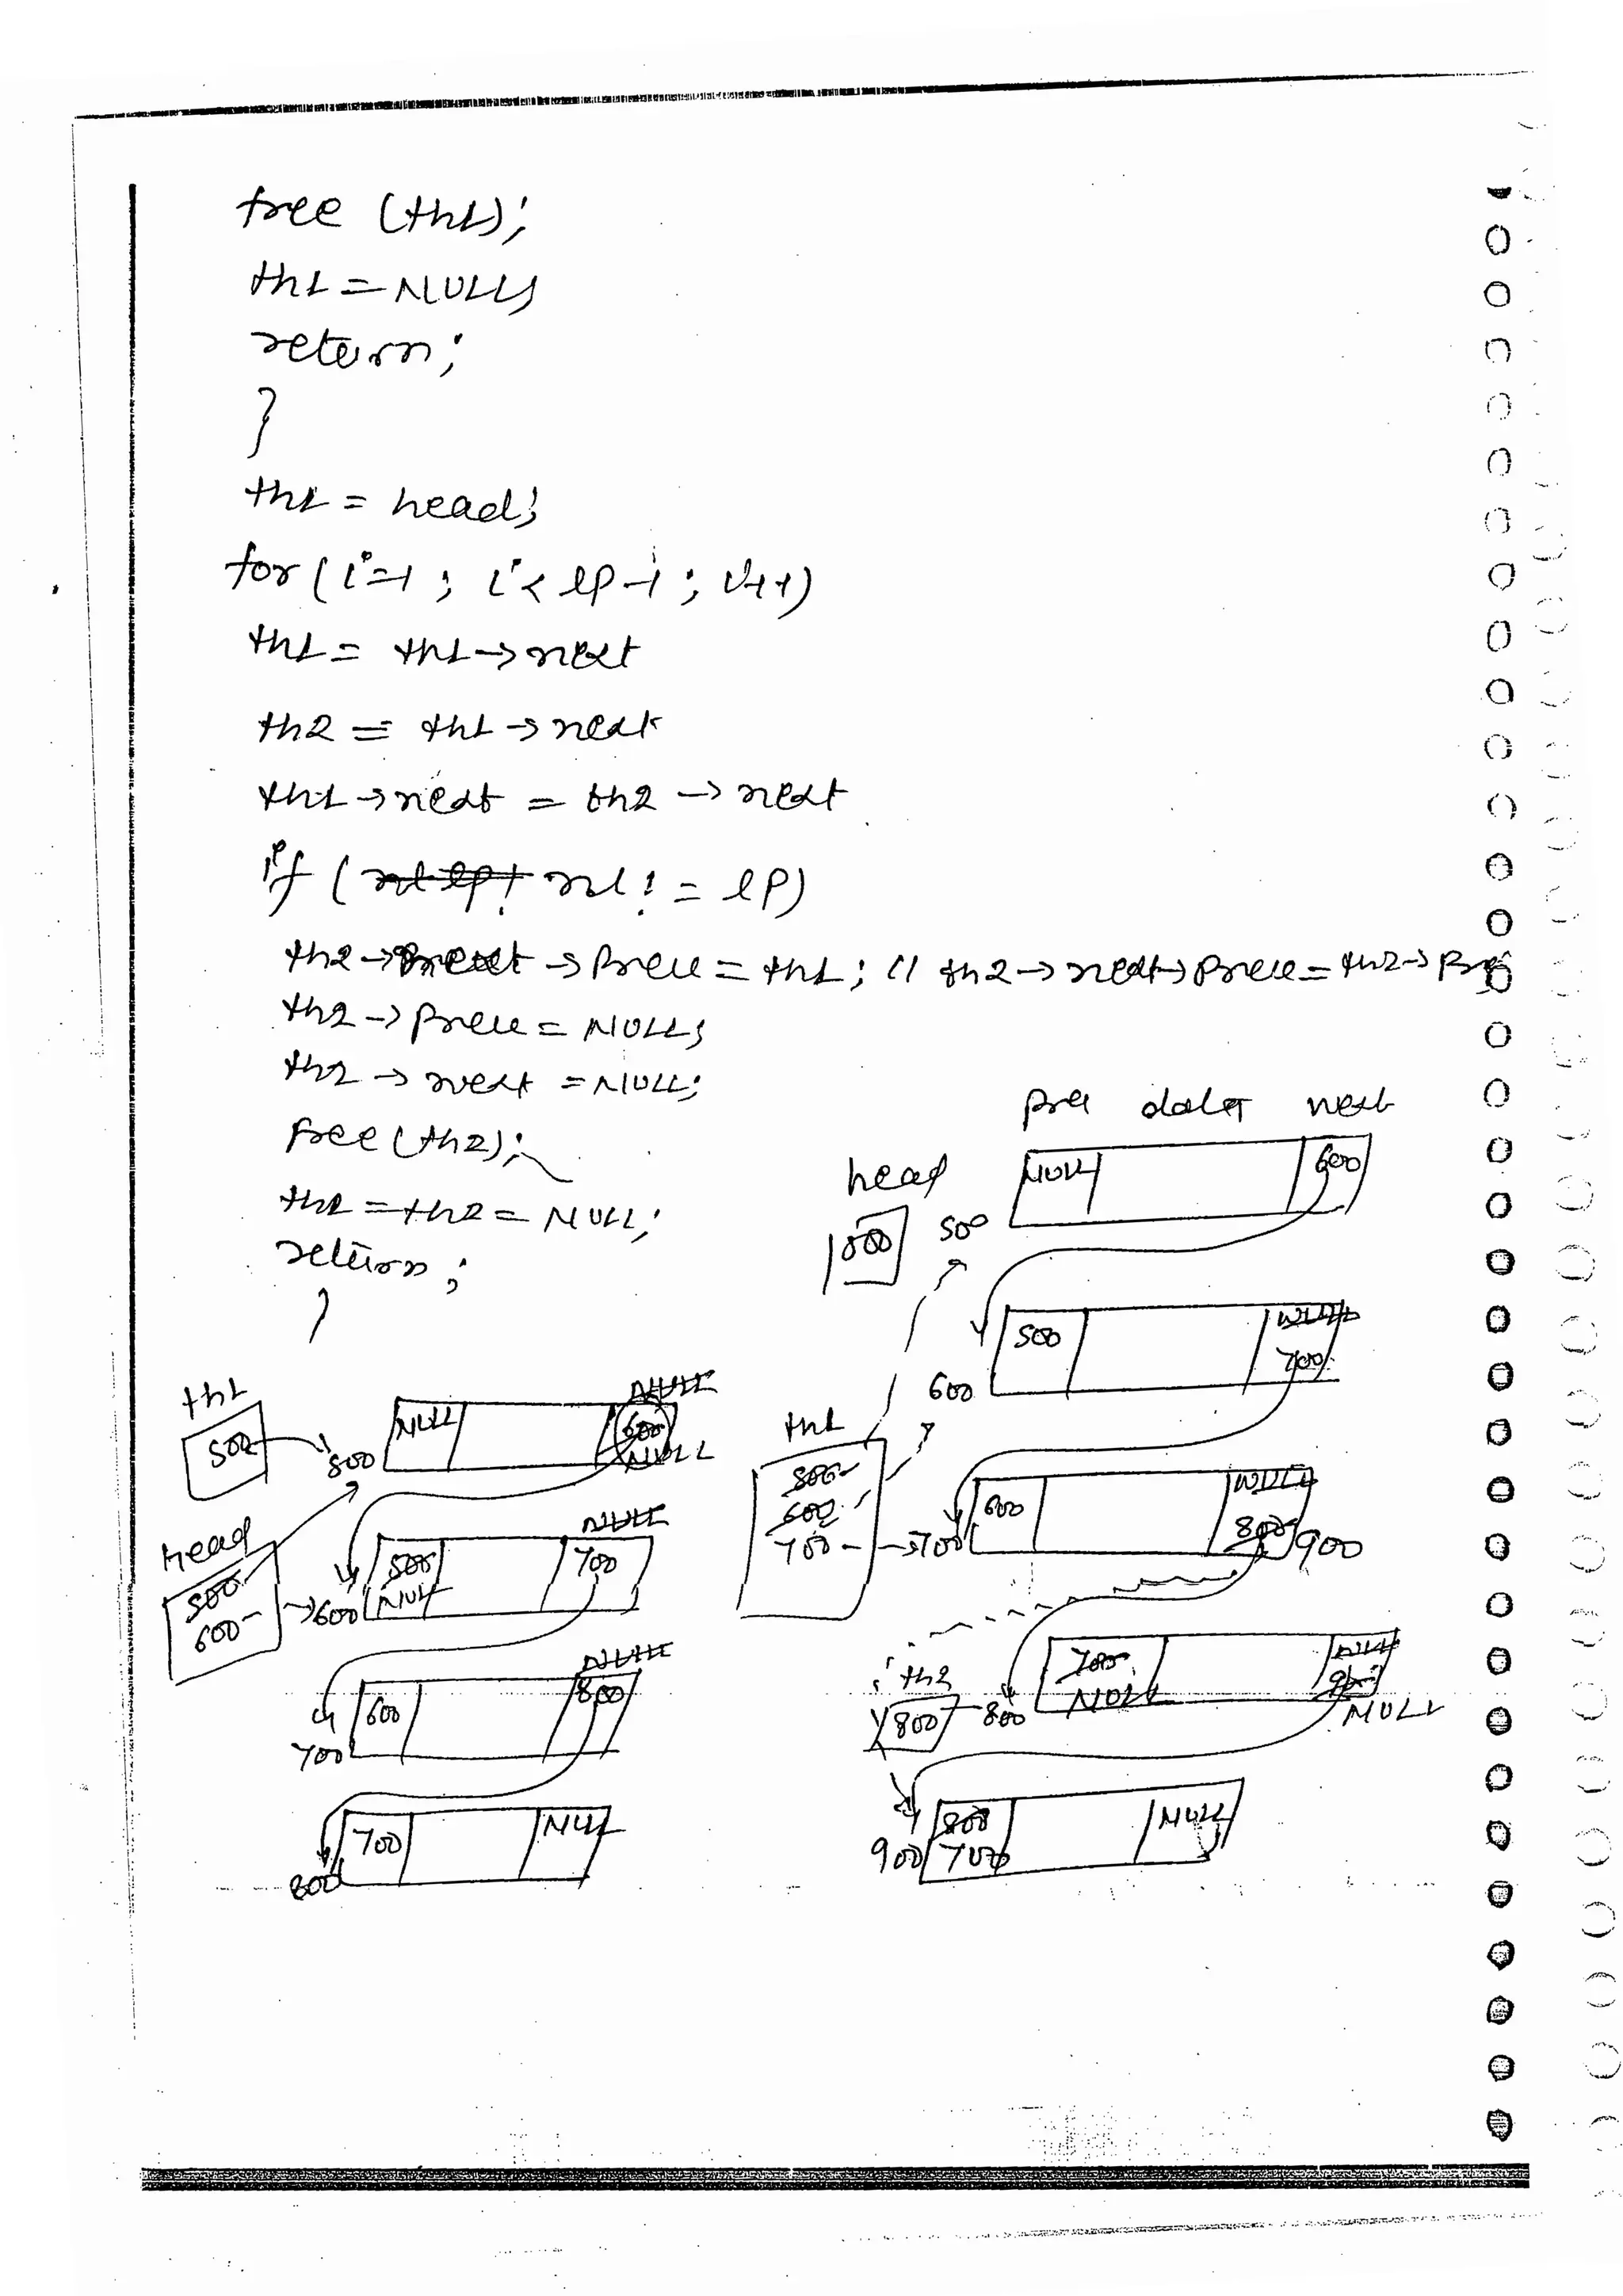 free (th1);
th1 = NULL;
return;
}
th1 = head;
for (i=1 ; i< lp-1 ; i++)
th1 = th1->next
th2 = th1->next
th1->next = th2->next
if ( nl != lp)
th2->next->prev = th1; // th2->next->prev = th2->prev
th2->prev = NULL;
th2->next = NULL;
free (th2);
th1 = th2 = NULL;
return;
}
prev data next
head
NULL 600
500
500
500 NULL
700
600
th1
500
NULL
NULL 600
500 NULL
th1
500
600
700
600 NULL
700 800 900
head
500
600
NULL
500 700
600 NULL
th2
800
700 NULL
800 NULL 900
NULL
NULL
600 800
700
800 NULL
900 700
700 NULL
800